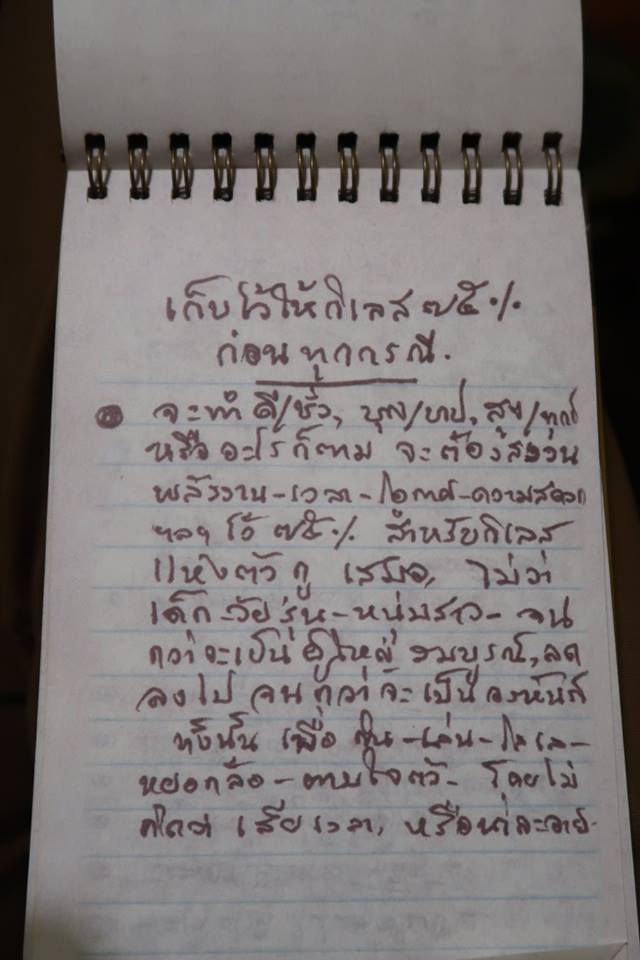 เก็บไว้ให้กิเลส ๗๕ %
ก่อนทุกกรณี.
จะทำ ดี/ชั่ว, บุญ/บาป, สุข/ทุกข์
หรืออะไรก็ตาม จะต้องสงวน
พลังงาน-เวลา-โอกาส-ความสะดวก
ฯลฯ ไว้ ๗๕ % สำหรับกิเลส
แห่งตัวกู เสมอ, ไม่ว่า
เด็ก-วัยรุ่น-หนุ่มสาว- จน
กว่าจะเป็นผู้ใหญ่ สมบูรณ์, ลด
ลงไป จนกว่าจะเป็นอรหันต์
ทั้งนั้น เพื่อ กิน-เล่น-ไลเล-
หยอกล้อ-ตามใจตัว- โดยไม่
คิดว่า เสียเวลา, หรือน่าละอาย.